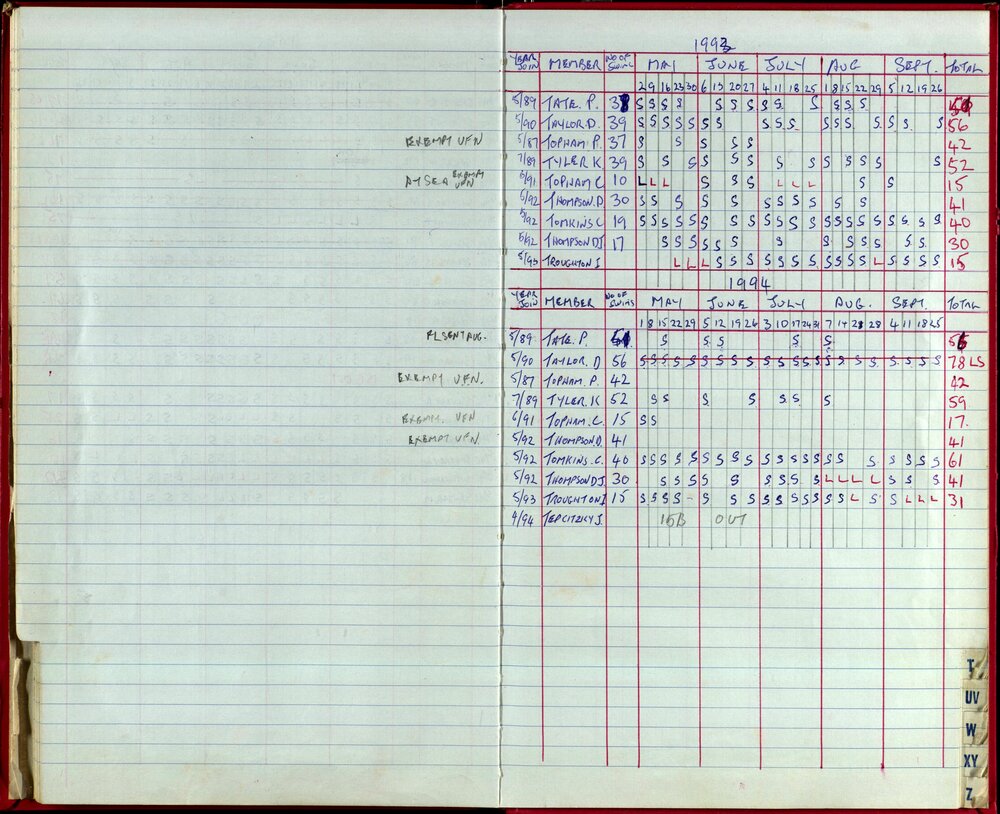 1993
YEAR JOIN MEMBER NO OF SWIMS MAY JUNE JULY AUG SEPT. TOTAL
2 9 16 23 30 6 13 20 27 4 11 18 25 1 8 15 22 29 5 12 19 26
5/89 TATE. P. S S S S S S S S S S S S S
5/90 TAYLOR. D. 39 S S S S S S S S S S S S S S S S S 56
EXEMPT UFN 5/87 TOPHAM P. 37 S S S S S 42
7/89 TYLER K. 39 S S S S S S S S S S S S S 52
AT SEA EXEMPT UFN 6/91 TOPHAM C 10 L L L S S S L L L S S 15
5/92 THOMPSON. D 30 S S S S S S S S S S S 41
5/92 TOMKINS C 19 S S S S S S S S S S S S S S S S S S S S S 40
5/92 THOMPSON DJ 17 S S S S S S S S S S S S S 30
5/93 TROUGHTON I L L L S S S S S S S S S S S L S S S S 15
1994
YEAR JOIN MEMBER NO OF SWIMS MAY JUNE JULY AUG. SEPT. TOTAL
1 8 15 22 29 5 12 19 26 3 10 17 24 31 7 14 21 28 4 11 18 25
FLSENT AUG. 5/89 TATE. P. 51 S S S S S 56
5/90 TAYLOR. D 56 S S S S S S S S S S S S S S S S S S S S S S 78 LS
EXEMPT U.F.N. 5/87 TOPHAM. P. 42 42
7/89 TYLER. K 52 S S S S S S S 59
EXEMPT. UFN 6/91 TOPHAM. C. 15 S S 17.
EXEMPT UFN 5/92 THOMPSON D 41 41
5/92 TOMKINS. C. 40 S S S S S S S S S S S S S S S S S S S S S 61
5/92 THOMPSON DJ 30 S S S S S S S S S L L L L S S S 41
5/93 TROUGHTON I 15 S S S S - S S S S S S S S S S L S S L L L 31
4/94 15B OUT
T
UV
W
XY
Z